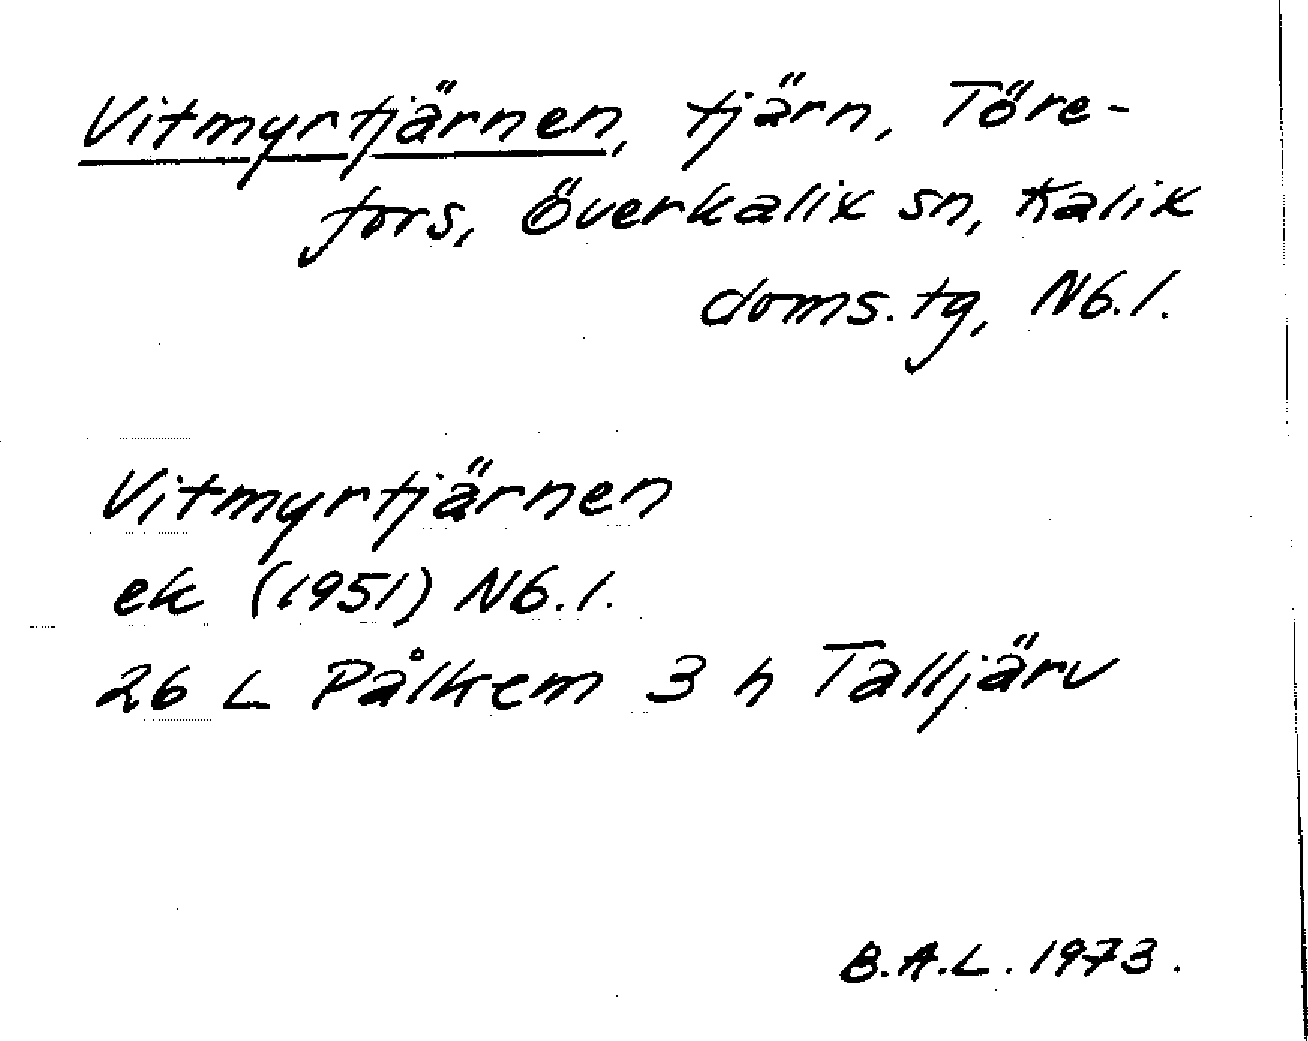 Vitmyrtjärnen, tjärn, Töre-
fors, Överkalix sn, Kalix
doms.tg, Nb.l.
Vitmyrtjärnen
ek (1951) Nb.l.
26 L Pålkem 3 h Talljärv
B.A.L. 1973.